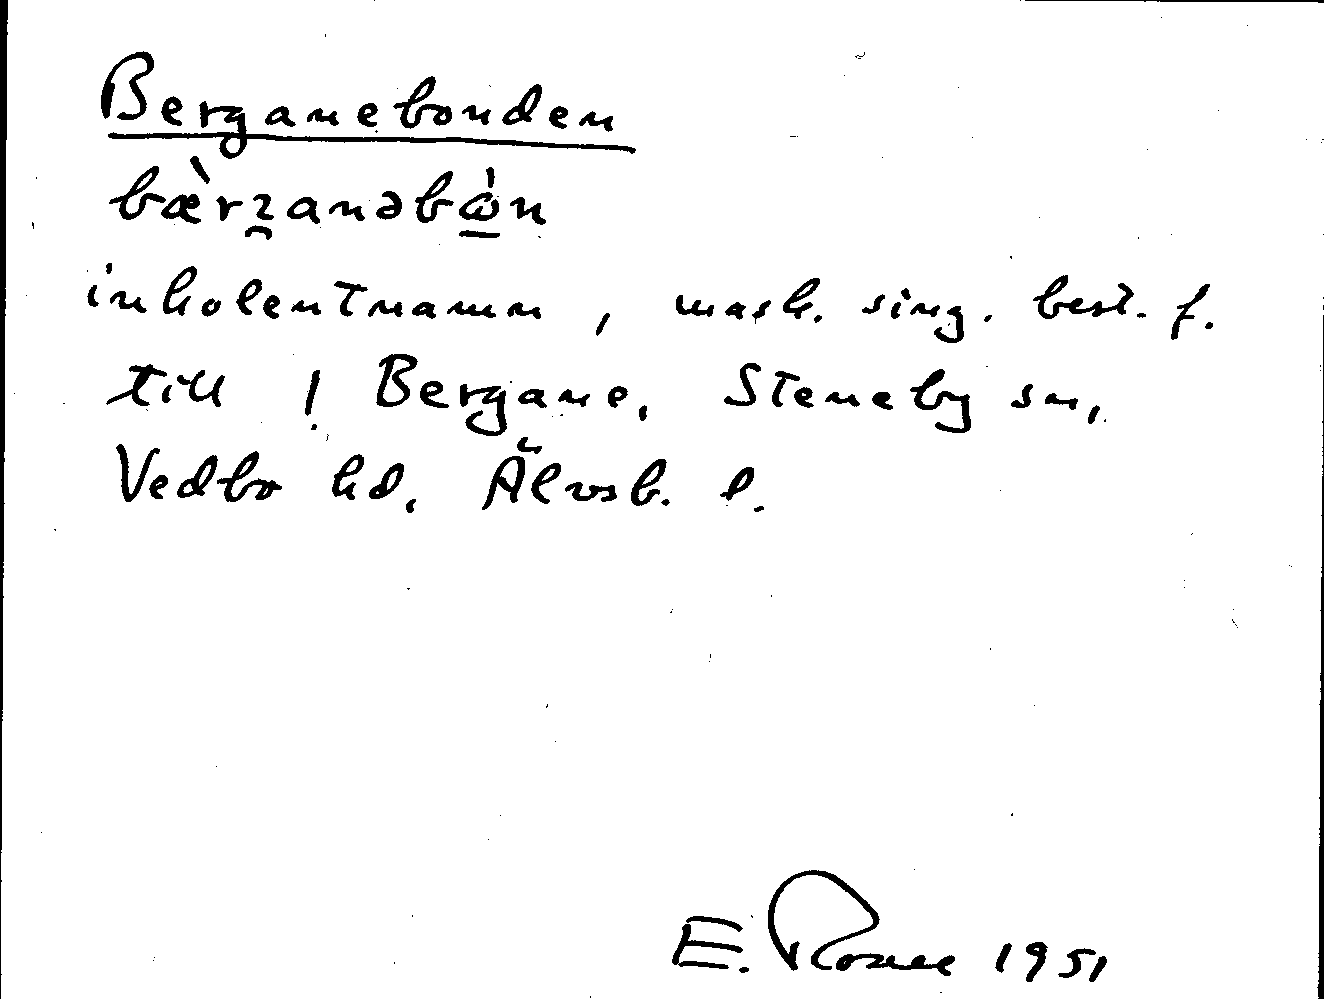 Berganebonden
bæ̀rꝛ̯anəbὼ̲n
inkolentnamn, mask. sing. best. f.
till ! Bergane, Steneby sn,
Vedbo hd, Älvsb. l.
E. 1951